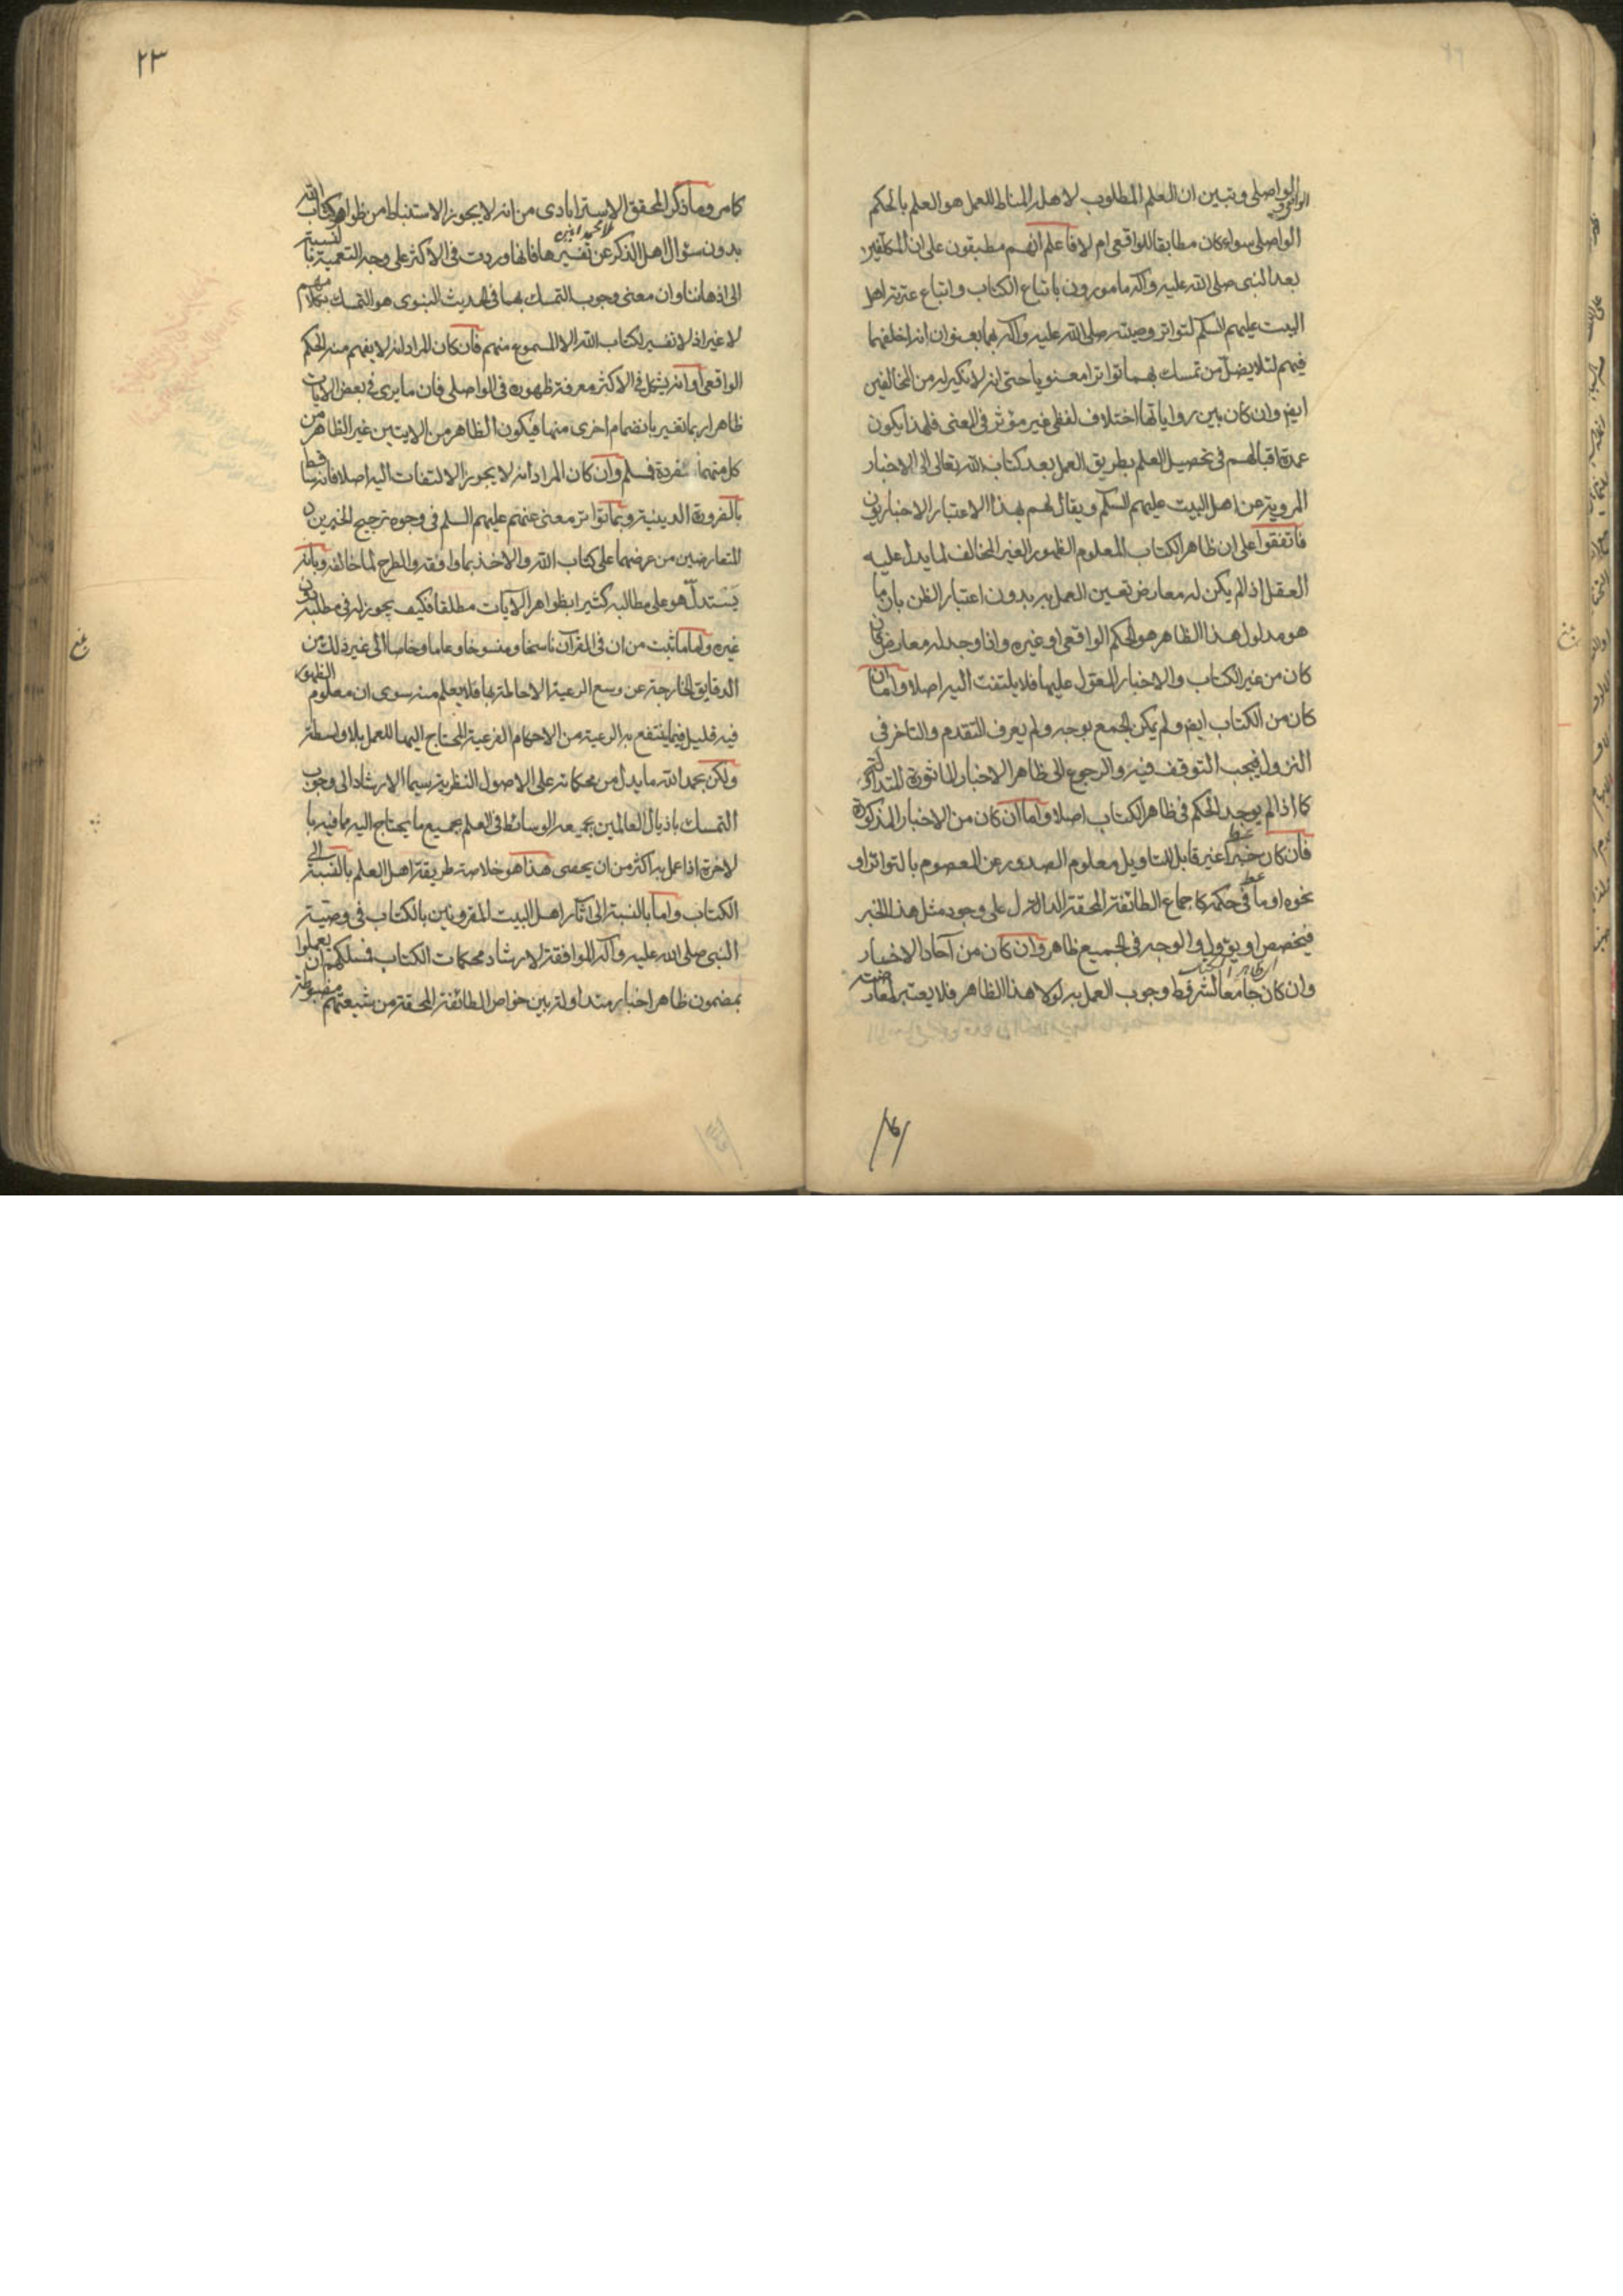 الواصلى وتبين ان العلم المطلوب لاهل المناط للعمل هو العلم بالحكم
الواصلى سواء كان مطابقا للواقعى ام لا فاعلم انهم مطبقون على ان المكلفين
بعد النبى صلى الله عليه وآله مامورون باتباع الكتاب واتباع عترته اهل
البيت عليهم السلم لتواتر وصيته صلى الله عليه وآله بهما بعنوان انه اخلفهما
فيهم لئلا يضل من تمسك بهما تواترا معنويا حتى انه لا نكير له من المخالفين
ايض وان كان بين رواياتها اختلاف لفظى غير مؤثر فى المعنى فلهذا يكون
عمدة اقبالهم فى تحصيل العلم بطريق العمل بعد كتاب الله تعالى الى الاخبار
المروية عن اهل البيت عليهم السلم ويقال لهم بهذا الاعتبار الاخباريون
فاتفقوا على ان ظاهر الكتاب المعلوم الظهور الغير المخالف لما يدل عليه
العقل اذا لم يكن له معارض تعين العمل به بدون اعتبار الظن بان ما
هو مدلول هذا الظاهر هو الحكم الواقعى او غيره واذا وجد له معارض فان
كان من غير الكتاب والاخبار المعول عليها فلا يلتفت اليه اصلا واما ان
كان من الكتاب ايض ولم يمكن الجمع بوجه ولم يعرف المتقدم والتاخر فى
النزول فيجب التوقف فيه والرجوع الى ظاهر الاخبار الماثورة المتداولة
كما اذا لم يوجد الحكم فى ظاهر الكتاب اصلا واما ان كان من الاخبار المذكورة
فان كان خبرا غير قابل للتاويل معلوم الصدور عن المعصوم بالتواتر او
نحوه او ما فى حكمه كاجماع الطائفة المحقة الدال على وجود مثل هذا الخبر
فيخصص او يؤول والوجه فى الجميع ظاهر وان كان من آحاد الاخبار
وان كان جامعا لشرائط وجوب العمل به لولا هذا الظاهر فلا يعتبر معارضته
١٦
٢٣
كما مر وما ذكر المحقق الاسترابادى من انه لا يجوز الاستنباط من ظواهر كتاب الله
ملا محمد امين
بدون سئوال اهل الذكر عن تفسيرها فانها وردت فى الاكثر على وجه التعمية بالنسبة
الى اذهاننا وان معنى وجوب التمسك بهما فى الحديث النبوى هو التمسك بكلامهم
لا غير اذ لا تفسير لكتاب الله الا المسموع منهم فان كان المراد انه لا يفهم منه الحكم
الواقعى او انه يشكل فى الاكثر معرفة ظهوره فى الواصلى فان ما يرى فى بعض الايات
ظاهرا ربما تغير بانضمام اخرى منها فيكون الظاهر من الايتين غير الظاهر من
كل منهما منفردة فمسلم وان كان المراد انه لا يجوز الالتفات اليه اصلا فانه ساقط
بالضرورة الدينية وبما تواتر معنى عنهم عليهم السلم فى وجوه ترجيح الخبرين
المتعارضين من عرضهما على كتاب الله والاخذ بما وافقه والطرح لما خالفه وبانه
يستدل هو على مطالبه كثيرا بظواهر الآيات مطلقا فكيف يجوز له فى مطلبه دون
غيره واما ما ثبت من ان فى القرآن ناسخا ومنسوخا وعاما وخاصا الى غير ذلك من
الدقايق الخارجة عن وسع الرعية الاحاطة بها فلا يعلم منه سوى ان معلوم الظهور
فيه قليل فيما ينتفع به الرعية من الاحكام الفرعية المحتاج اليها للعمل بلا واسطة
ولكن بحمد الله ما يدل من محكماته على الاصول النظرية سيما الارشاد الى وجوب
التمسك باذيال العالمين بجميعه الوسائط فى العلم بجميع ما يحتاج اليه مما فيه با
لاخرة اذا عمل به اكثر من ان يحصى هذا هو خلاصة طريقة اهل العلم بالنسبة الى
الكتاب واما بالنسبة الى اثار اهل البيت المقرونين بالكتاب فى وصية
النبى صلى الله عليه وآله الموافقة لارشاد محكمات الكتاب فمسلكهم ان يعملوا
بمضمون ظاهر اخبار متداولة بين خواص الطائفة المحقة من شيعتهم مضبوطة